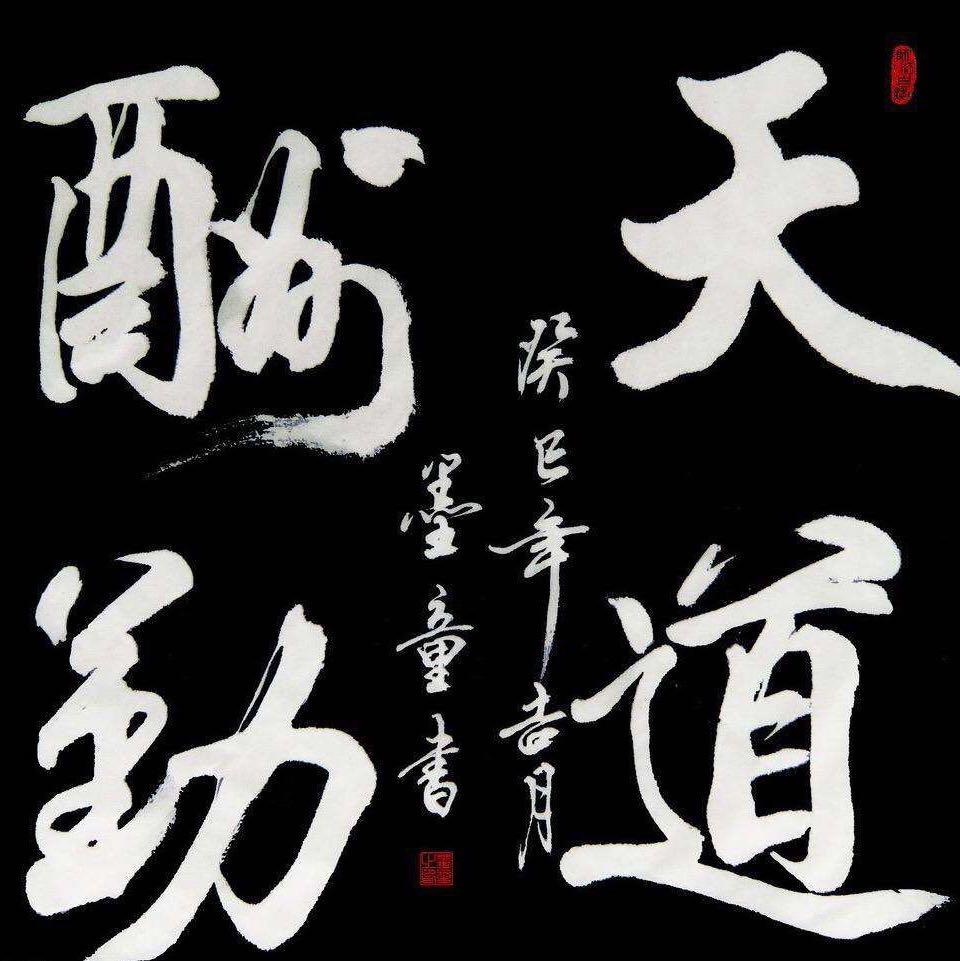 天道
酬勤
癸巳年吉月
墨童书